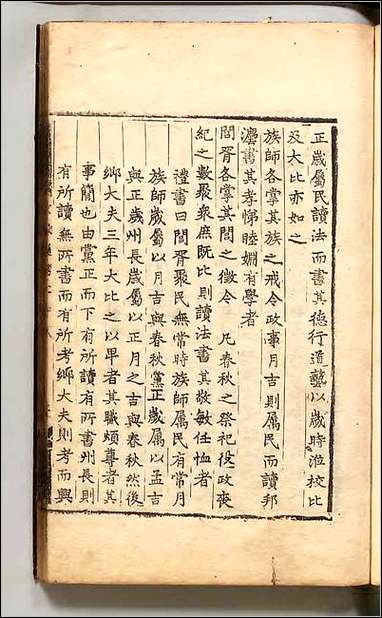 正歲屬民讀法而書其德行道藝以歲時涖校比
及大比亦如之
族師各掌其族之戒令政事月吉則屬民而讀邦
灋書其孝悌睦婣有學者
閭胥各掌其閭之徵令 凡春秋之祭祀役政喪
紀之數聚衆庶既比則讀法書其敬敏任恤者
禮書曰閭胥聚民無常時族師屬民有常月
族師歲屬以月吉與春秋黨正歲屬以孟吉
與正歲州長歲屬以正月之吉與春秋然後
鄉大夫三年大比之以畢者其職煩尊者其
事簡也由黨正而下有所讀有所書州長則
有所讀無所書而有所考鄉大夫則考而興